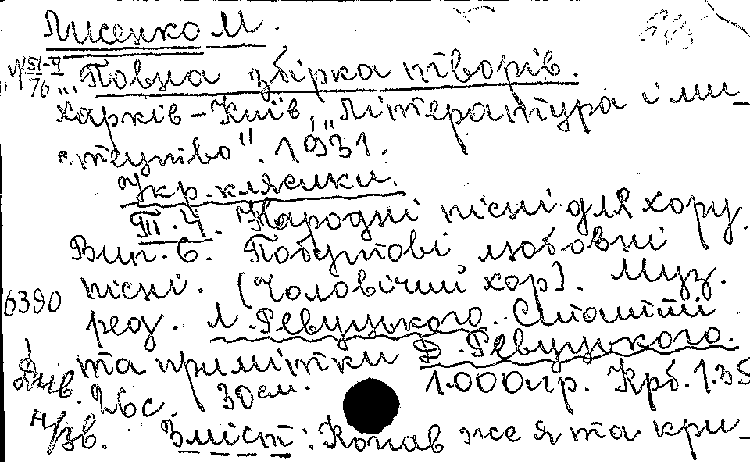 Лисенко М.
„Повна збірка творів.
Харків–Київ, „Література і ми-
стецтво". 1931.
Укр. клясики.
Т. 4. Народні пісні для хору.
Вип. 6. Побутові любовні
6390 пісні. (Чоловічий хор). Муз.
ред. Л. Ревуцького. Статті
та примітки Д. Ревуцького.
26 с. 30 см. 1.000 пр. Крб. 1.35
Зміст: Копав же я та кри-